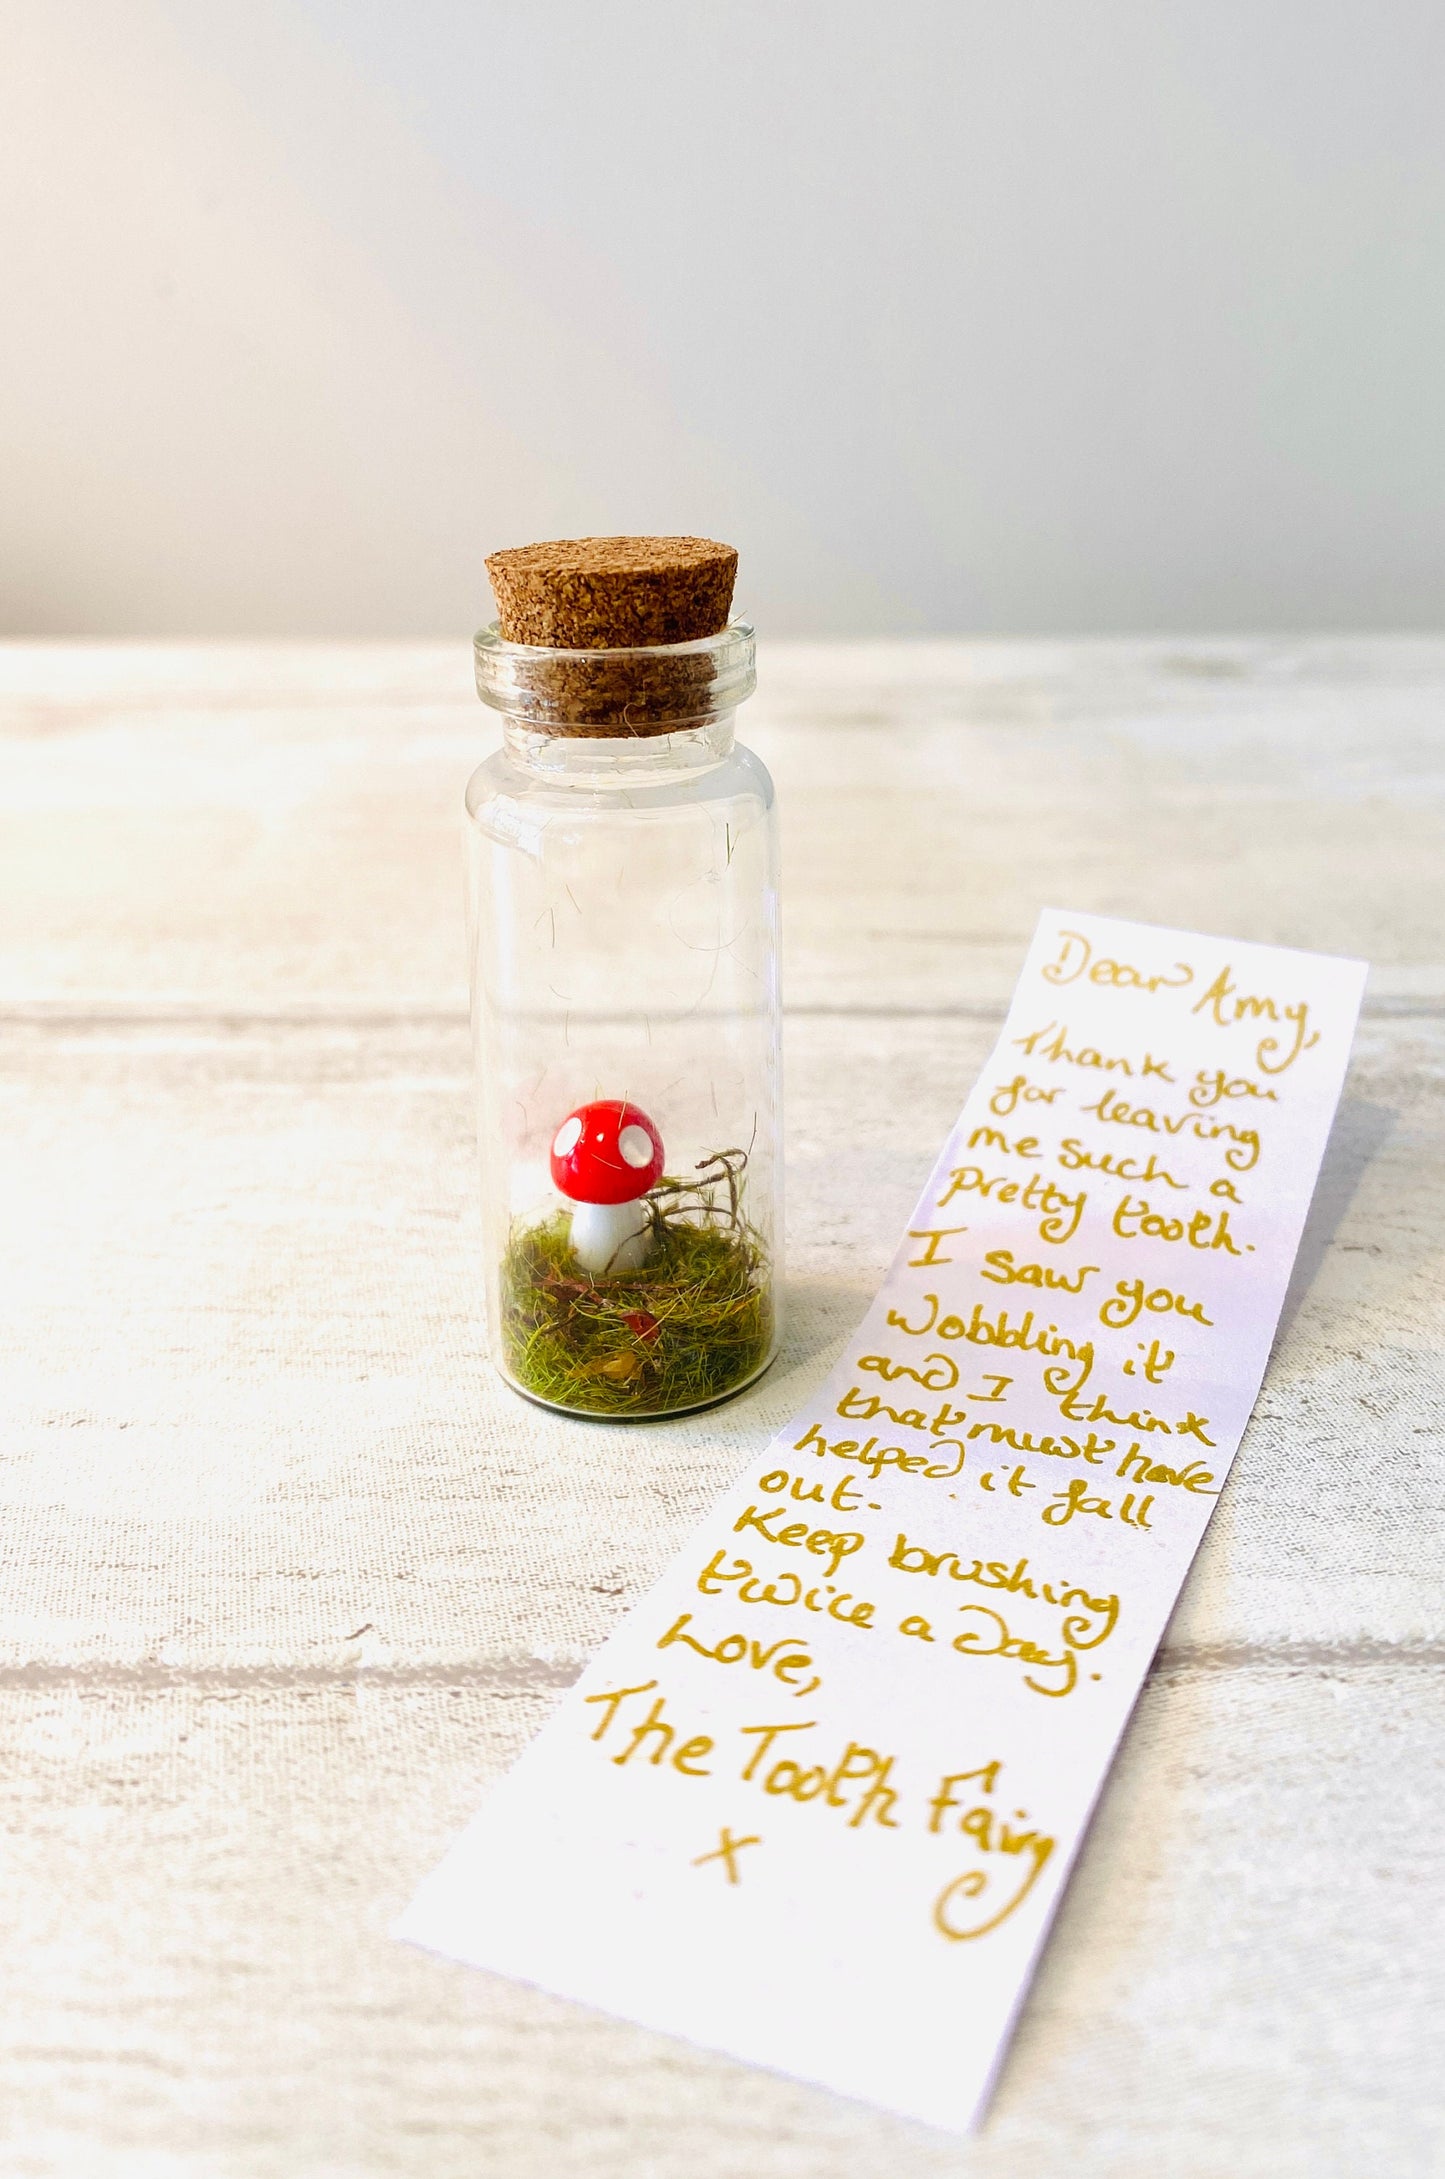 Dear Amy,
Thank you
for leaving
me such a
pretty tooth.
I saw you
Wobbling it
and I think
that must have
helped it fall
out.
Keep brushing
twice a day.
Love,
The Tooth Fairy
x